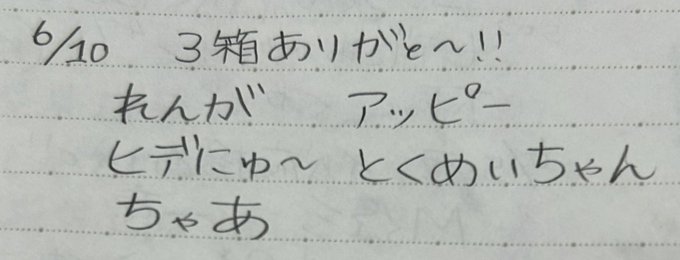 6/10 3箱ありがと〜!!
れんが アッピー
ヒデにゅ〜 とくめいちゃん
ちゃあ